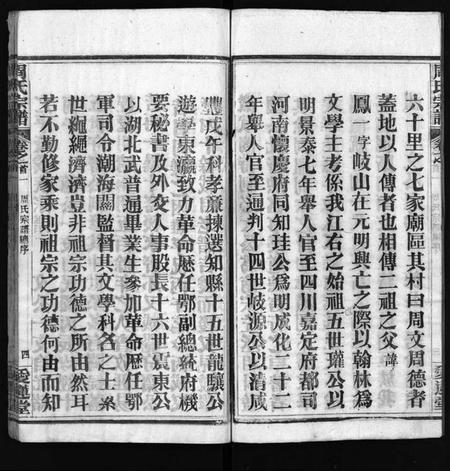 周氏宗譜
卷之首
六十里之七家廟區其村曰周文周德者
蓋地以人傳者也相傳二祖之父諱
鳳一字岐山在元明興亡之際以翰林為
文學主考係我江右之始祖五世瓘公以
明景泰七年舉人官至四川嘉定府都司
河南懷慶府同知珪公為明成化二十二
年舉人官至通判十四世岐源公以清咸
豐戊午科孝廉揀選知縣十五世龍驤公
遊學東瀛致力革命歷任鄂副總統府機
要秘書及外交人事股長十六世震東公
以湖北武普通畢業生參加革命歷任鄂
軍司令潮海關監督其文學科名之士系
世繩繩濟濟豈非祖宗功德之所由然耳
若不勤修家乘則祖宗之功德何由而知
周氏宗譜
卷之首
周氏宗譜總序
四
愛蓮堂